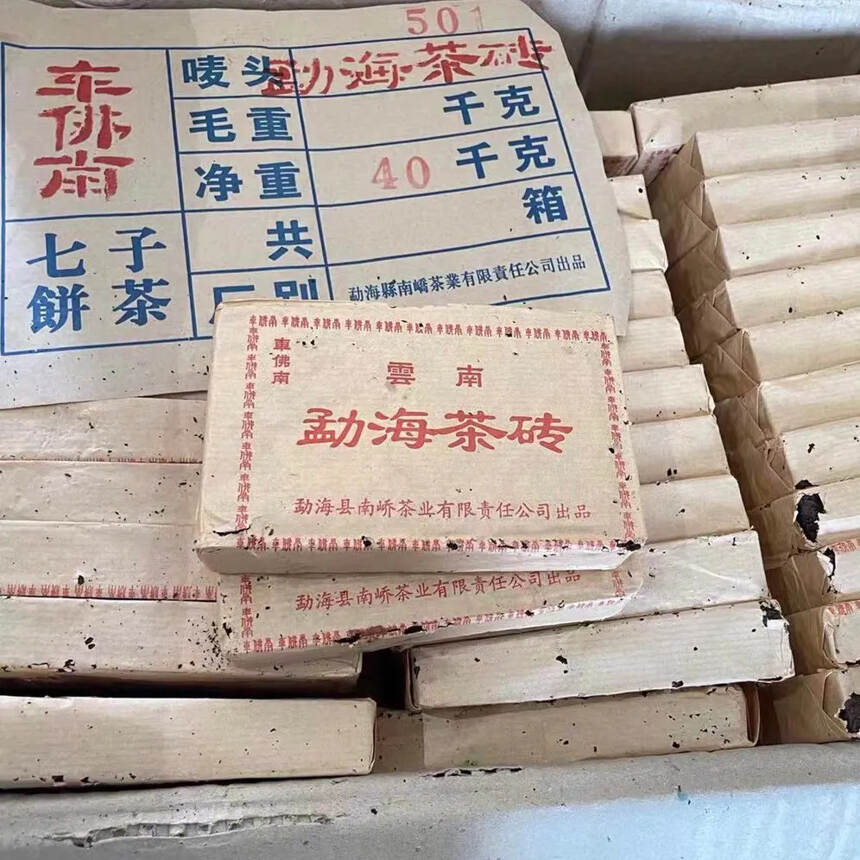 501
车佛南
唛头 勐海茶砖
毛重 千克
净重 40 千克
七子餅茶
共 箱
厂别 勐海縣南嶠茶業有限責任公司出品
車佛南
雲南
勐海茶砖
勐海县南峤茶业有限责任公司出品
勐海县南峤茶业有限责任公司出品